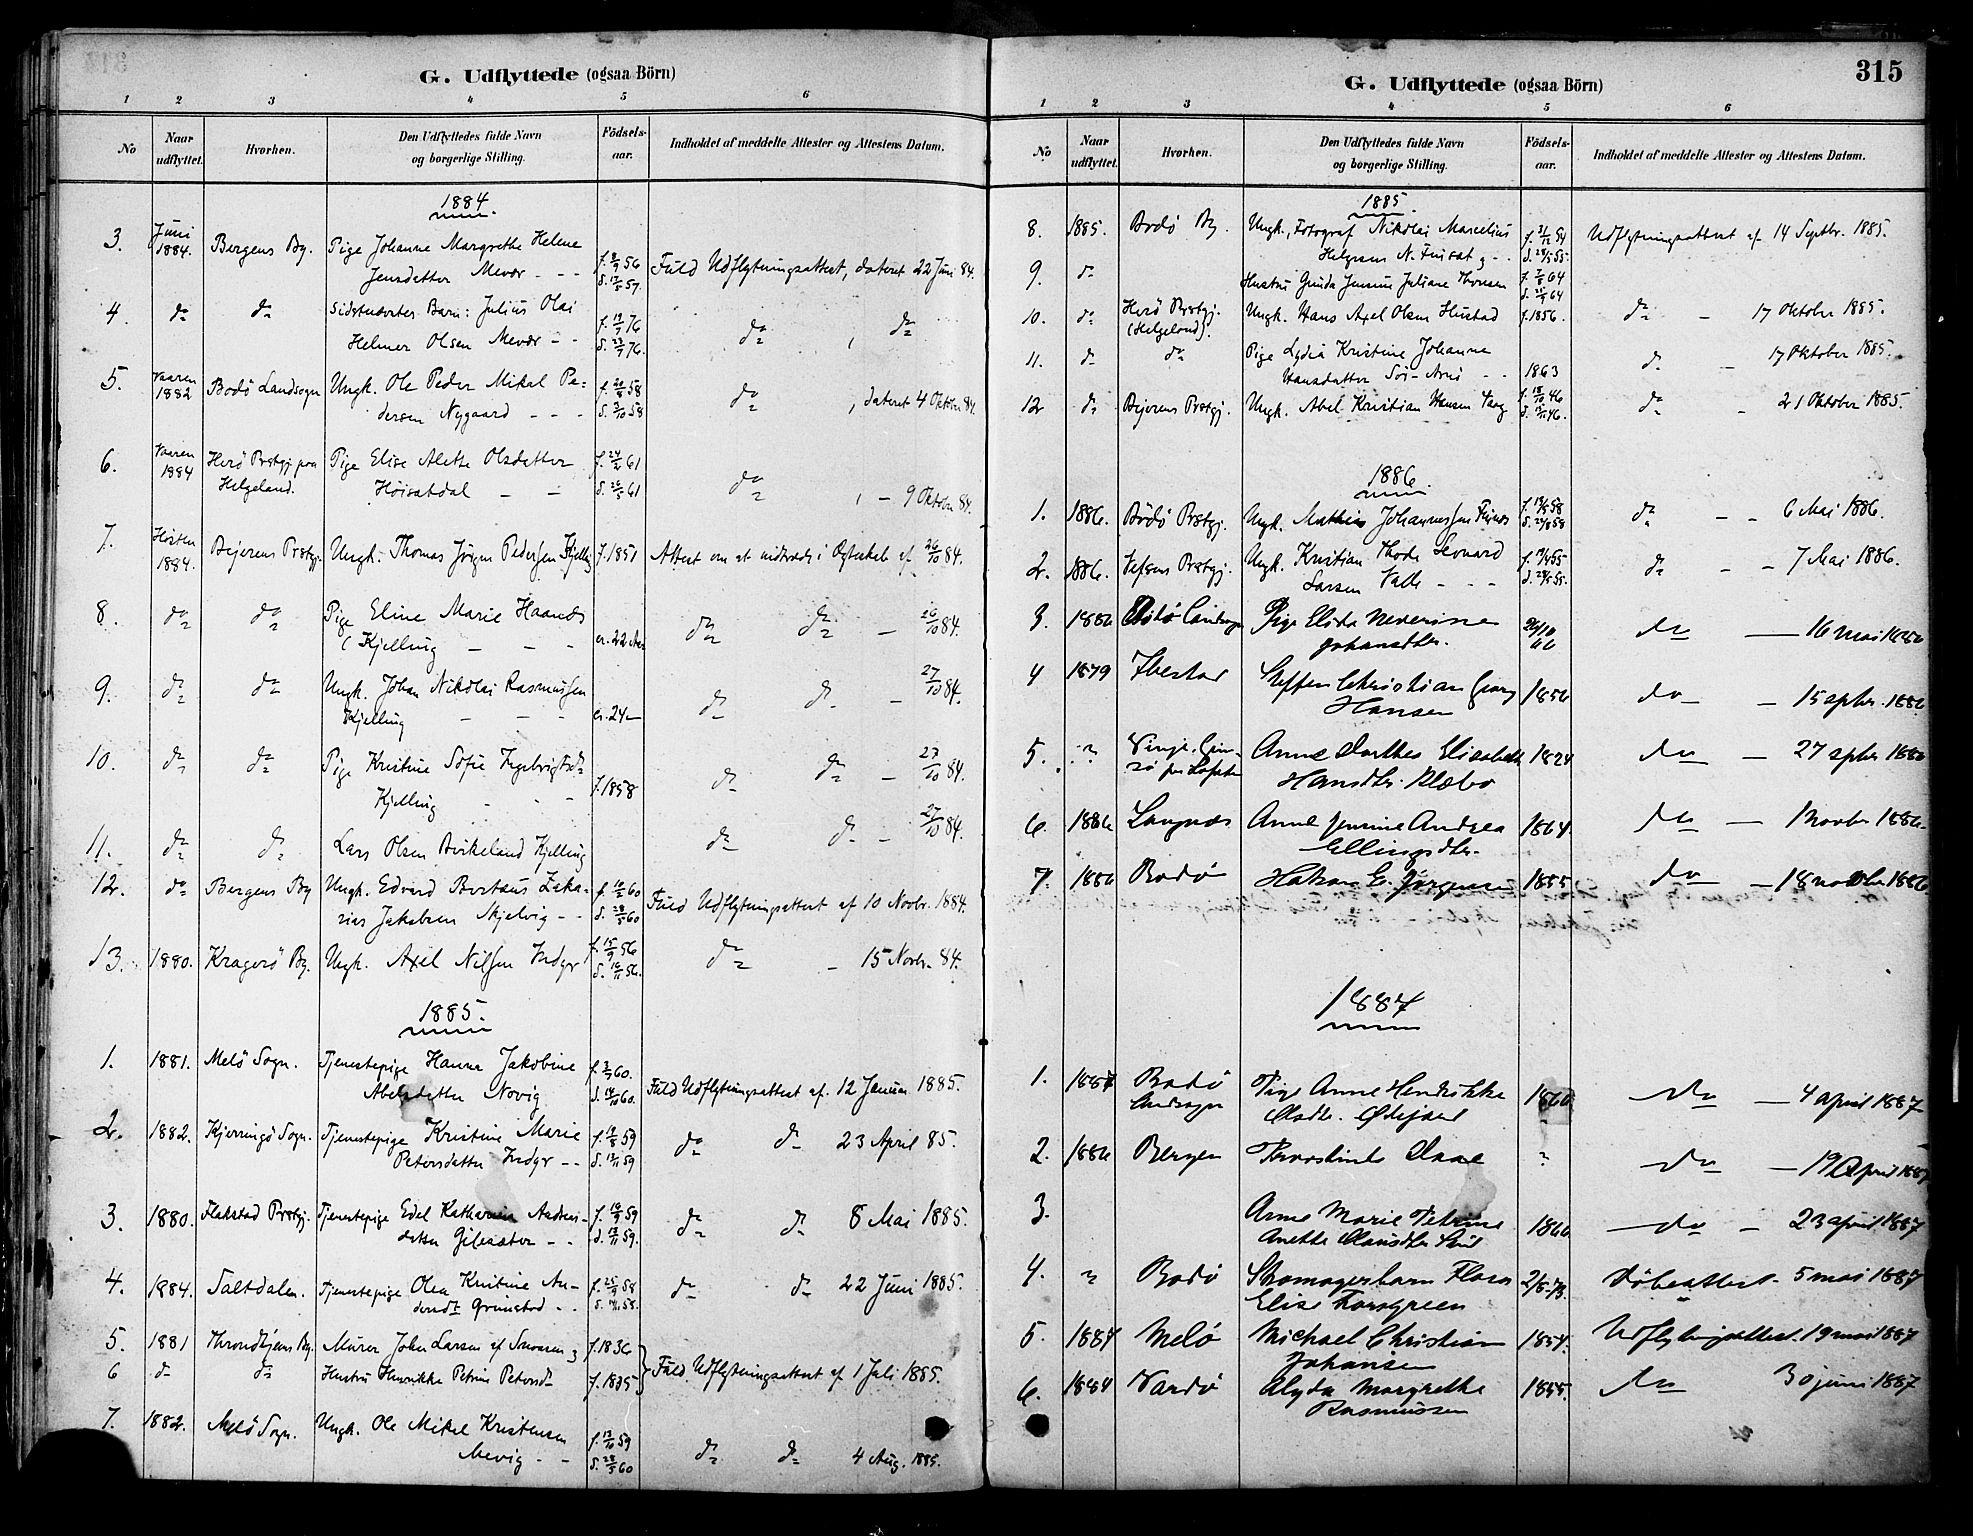 G. Udflyttede (ogsaa Börn)
1 2 3 4 5 6
No
Naar udflyttet.
Hvorhen.
Den Udflyttedes fulde Navn og borgerlige Stilling.
Födsels-aar.
Indholdet af meddelte Attester og Attestens Datum.
1884
3. Juni 1884. Bergens By. Pige Johanne Margrethe Helene
Jensdatter Mevær - - Fuld Udflytningsattest, dateret 22 Juni 84.
4. do do Sidstnævntes Barn: Julius Olai
Helmer Olsen Mevær - - do , do
5. Vaaren 1882 Bodö Landsogn Ungk. Ole Peder Mikal Pe-
dersen Nygaard - - - do , dateret 4 Oktbr 84.
6. Vaaren 1884 Herö Præstgj. paa Helgeland. Pige Elise Alette Olsdatter
Höisatdal - - do , - 9 Oktobr 84.
7. Hösten 1884. Bejerens Præstgj. Ungk. Thomas Jörgen Pedersen Kjelling f. 1851 Attest om at indtræde i Ægteskab af 26/10 84.
8. do do Pige Eline Marie Haands
(Kjelling - - - cr. 22 Aar do do - 26/10 84.
9. do do Ungk. Johan Nikolai Rasmussen
Kjelling - - - cr. 24 - do do - 27/10 84.
10. do do Pige Kristine Sofie Ingebrigtsdr
Kjelling - - f. 1858 do do - 27/10 84.
11. do do Lars Olsen Kjelling do do - 27/10 84.
12. do Bergens By Ungk. Edvard Zaka-
rias Jakobsen Skjelvig - - Fuld Udflytningsattest af 10 Novbr. 1884.
13. 1880. Kragerö By. Ungk. Axel Nilsen Indyr do - 15 Novbr. 84.
1885.
1. 1881. Melö Sogn. Tjenestepige Hanna Jakobine
Abelsdatter Novig Fuld Udflytningsattest af 12 Januar 1885.
2. 1882. Kjerringö Sogn. Tjenestepige Kristine Marie
Petersdatter Indyr - - do do 23 April 85.
3. 1880. Flakstad Præstgj. Tjenestepige Edel Katharina Andreas-
datter Gilesæter - - do do 8 Mai 1885.
4. 1884. Saltdalen. Tjenestepige Olea Kristine An-
dersdr Grimstad - - do do 22 Juni 1885.
5. 1881 Throndhjems By. Murer John Larsen af f. 1836
6 do do Hustru Henrikke Petrine Petersdr f. 1835 Fuld Udflytningsattest af 1 Juli 1885.
7. 1882. Melö Sogn. Ungk. Ole Mikel Kristensen
Mevig - - do do 4 Aug. 1885.
G. Udflyttede (ogsaa Börn)
315
1 2 3 4 5 6
No
Naar udflyttet.
Hvorhen.
Den Udflyttedes fulde Navn og borgerlige Stilling.
Födsels-aar.
Indholdet af meddelte Attester og Attestens Datum.
1885.
8. 1885. Bodö By. Ungk., Fotograf Nikolai Marcelius Udflytningsattest af 14 Septbr. 1885.
9. do Hustru Gunda Juliane
10. do Herö Præstgj. (Helgeland). Ungk. Hans Axel Olsen Hustad f. 1856. do - 17 Oktober 1885.
11. do do Pige Lydia Kristine Johanna
Hansdatter Sör-Arnö - - 1863 do - 17 Oktober 1885.
12 do Bejerens Præstgj. Ungk. Abel Kristian Hansen do - 21 Oktober 1885.
1886.
1. 1886. Bodö Præstgj. Ungk. Mathias Johannessen do - - 6 Mai 1886.
2. 1886. Vefsens Præstgj. Ungk. Kristian Thode Leonard
Larsen Valle - - - do - - 7 Mai 1886.
3. 1886 Bodö Landsogn Pige Elida
Johansdtr. do - 16 mai 1886
4 1879 Ibestad Steffen Christian Georg
Hansen 1856 do - 15 septbr. 1886.
5. " Anne Dorthea Elisabeth
Hansdtr. Klæbo 1824 do - 27 septbr 1886
6. 1886 Langnæs Anne Jensine Andrea
Ellingsdtr. 1864. do - 1886.
7. 1886 Bodö Hakon E. Jörgensen 1855 do - 18 novbr 1886
1887
1. 1887 Bodö Landsogn Pige Anne Hendrikke
Olsdtr. 1860 do - 4 april 1887
2. 1886 Bergen Daae ? do - 19 April 1887
3. Anne Marie Petrine
Anette 1860 do - 23 april 1887
4. " Bodö Skomagerbarn Flora
Elise Forsgreen 2/5-73. Döbeattest 5 mai 1887
5. 1887 Melö Michael Christian
Johansen 1854. Udflytningsattest. 19 mai 1887
6. 1884 Vardö Alyda Margrethe
Rasmussen 1855. do 30 juni 1887